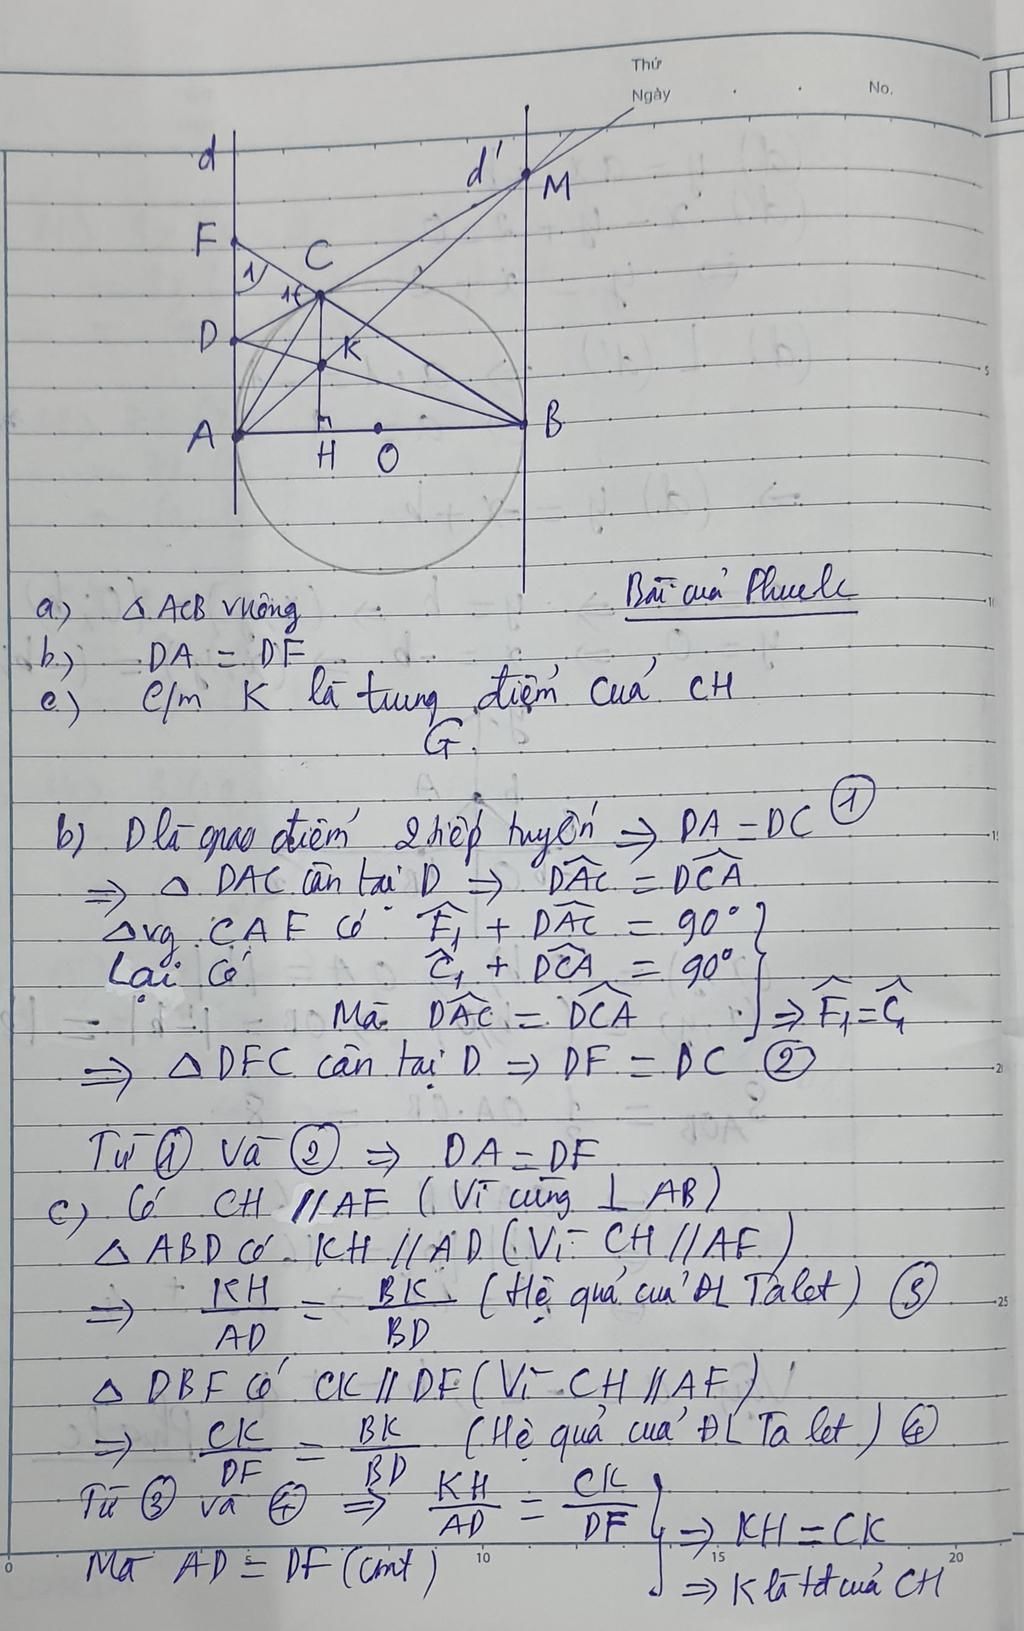 Thứ
Ngày
No.
d
d'
M
F
C
1
1
D
K
A
B
H
O
Bài của Phuelc
a) Δ ACB vuông
b) DA = DF
c) C/m K là trung điểm của CH
G.
b) D là giao điểm 2 tiếp tuyến ⇒ DA = DC ①
⇒ Δ DAC cân tại D ⇒ \widehat{DAC} = \widehat{DCA}
Δvg CAF có \widehat{F}₁ + \widehat{DAC} = 90°
Lại có \widehat{C}₁ + \widehat{DCA} = 90°
Mà \widehat{DAC} = \widehat{DCA} } ⇒ \widehat{F}₁ = \widehat{C}₁
⇒ Δ DFC cân tại D ⇒ DF = DC ②
Từ ① và ② ⇒ DA = DF
c) Có CH // AF (Vì cùng ⊥ AB)
Δ ABD có KH // AD (Vì CH // AF)
⇒ KH/AD = BK/BD (Hệ quả của ĐL Talet) ③
Δ DBF có CK // DF (Vì CH // AF)
⇒ CK/DF = BK/BD (Hệ quả của ĐL Talet) ④
Từ ③ và ④ ⇒ KH/AD = CK/DF } ⇒ KH = CK
Mà AD = DF (cmt) ⇒ K là tđ của CH
5
10
15
20
25
0
5
10
15
20